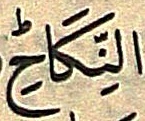 النِّكَاحِؕ